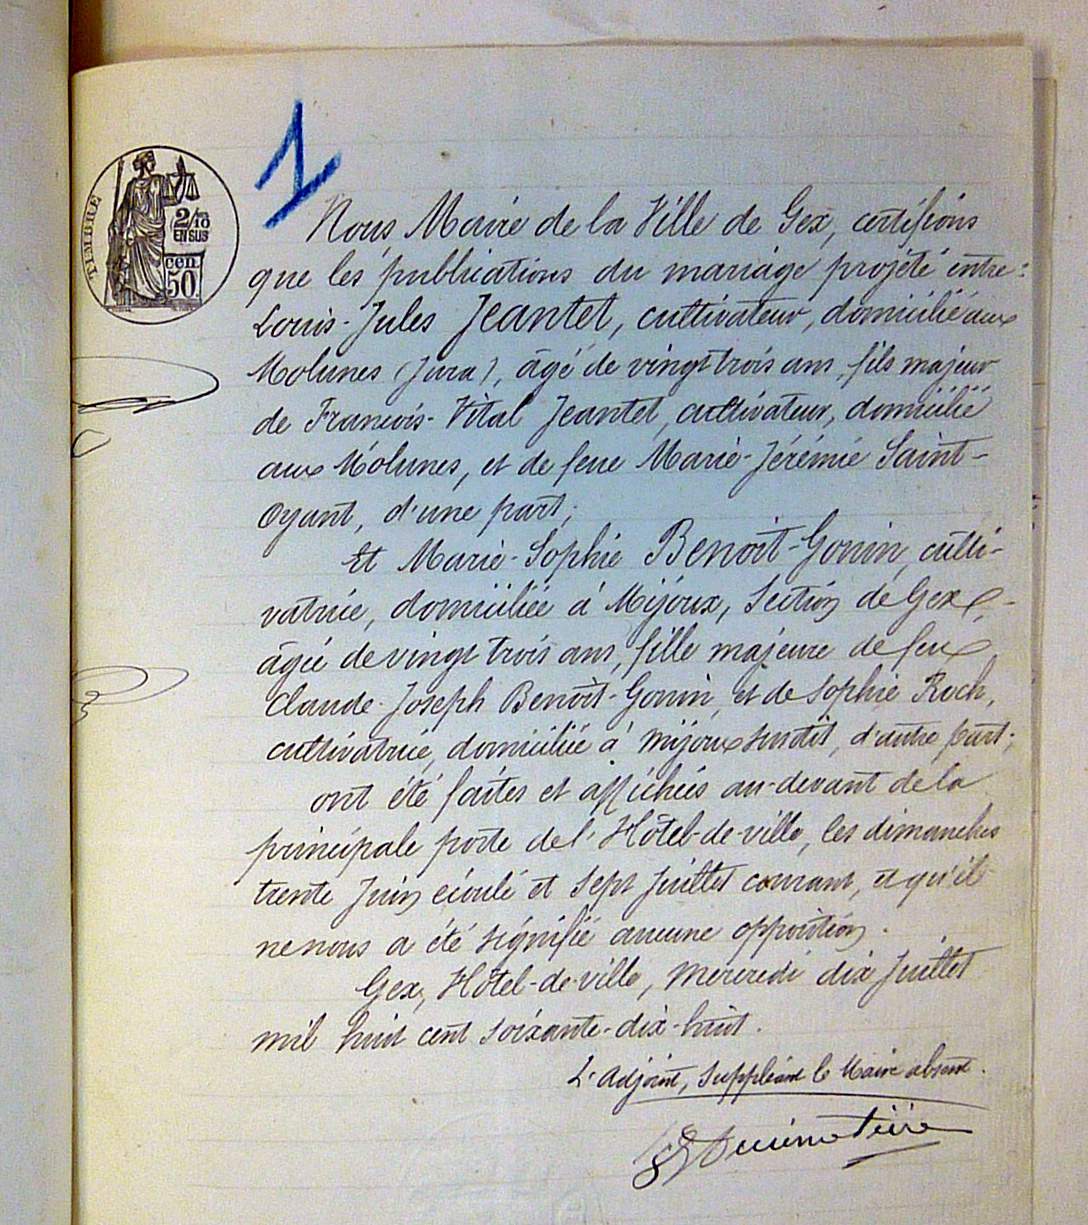 1
TIMBRE
2/10
EN SUS
cen.
50
Nous Maire de la Ville de Gex, certifions
que les publications du mariage projeté entre:
Louis-Jules Jeantet, cultivateur, domicilié aux
Molunes (Jura), âgé de vingt trois ans, fils majeur
de François-Vital Jeantet, cultivateur, domicilié
aux Molunes, et de feue Marie-Jérémie Saint-
Oyant, d'une part;
Et Marie-Sophie Benoit-Gonin, culti-
vatrice, domiciliée à Mijoux, Section de Gex,
âgée de vingt trois ans, fille majeure de feu
Claude-Joseph Benoît-Gonin, et de Sophie Roch,
cultivatrice, domiciliée à Mijoux susdit, d'autre part;
ont été faites et affichées au-devant de la
principale porte de l'Hôtel-de-ville, les dimanches
trente Juin écoulé et Sept Juillet courant, et qu'il
ne nous a été signifié aucune opposition.
Gex, Hôtel-de-ville, Mercredi dix Juillet
mil huit cent soixante-dix-huit.
L'Adjoint, suppléant le Maire absent.